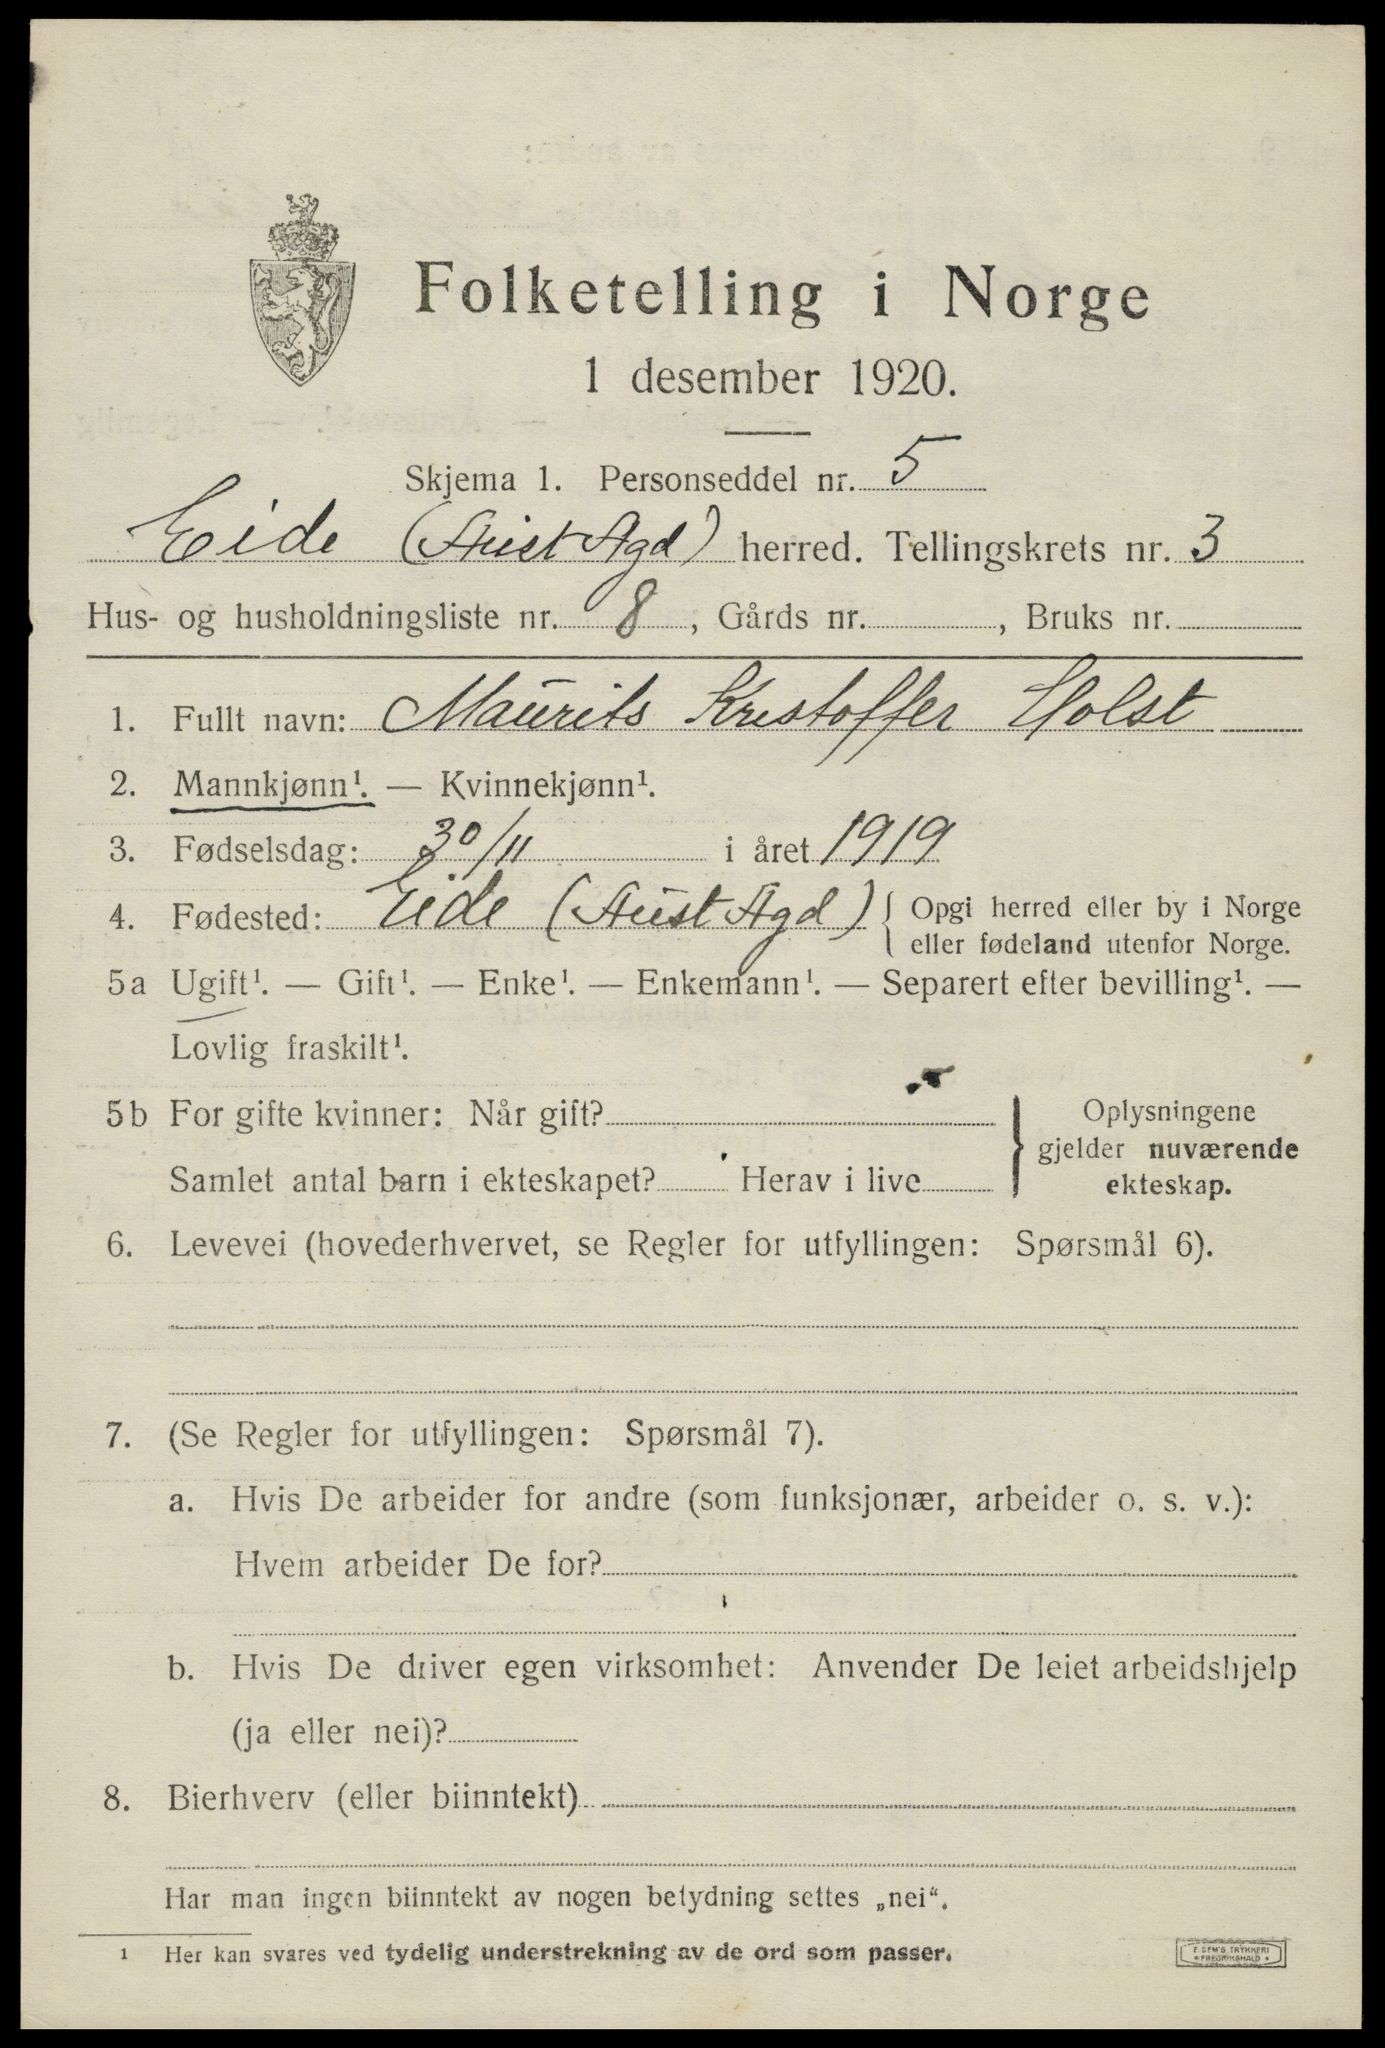 Folketelling i Norge
1 desember 1920.
Skjema 1. Personseddel nr. 5
Eide (Aust Agd) herred. Tellingskrets nr. 3
Hus- og husholdningsliste nr. 8, Gårds nr. , Bruks nr.
1. Fullt navn: Maurits Kristoffer Holst
2. Mannkjønn¹. — Kvinnekjønn¹.
3. Fødselsdag: 30/11 i året 1919
4. Fødested: Eide (Aust Agd) { Opgi herred eller by i Norge
eller fødeland utenfor Norge.
5a Ugift¹. — Gift¹. — Enke¹. — Enkemann¹. — Separert efter bevilling¹. —
Lovlig fraskilt¹.
5b For gifte kvinner: Når gift?
Samlet antal barn i ekteskapet? Herav i live
} Oplysningene
gjelder nuværende
ekteskap.
6. Levevei (hovederhvervet, se Regler for utfyllingen: Spørsmål 6).
7. (Se Regler for utfyllingen: Spørsmål 7).
a. Hvis De arbeider for andre (som funksjonær, arbeider o. s. v.):
Hvem arbeider De for?
b. Hvis De driver egen virksomhet: Anvender De leiet arbeidshjelp
(ja eller nei)?
8. Bierhverv (eller biinntekt)
Har man ingen biinntekt av nogen betydning settes „nei“.
1 Her kan svares ved tydelig understrekning av de ord som passer.
E. SEM'S TRYKKERI
• FREDRIKSHALD •